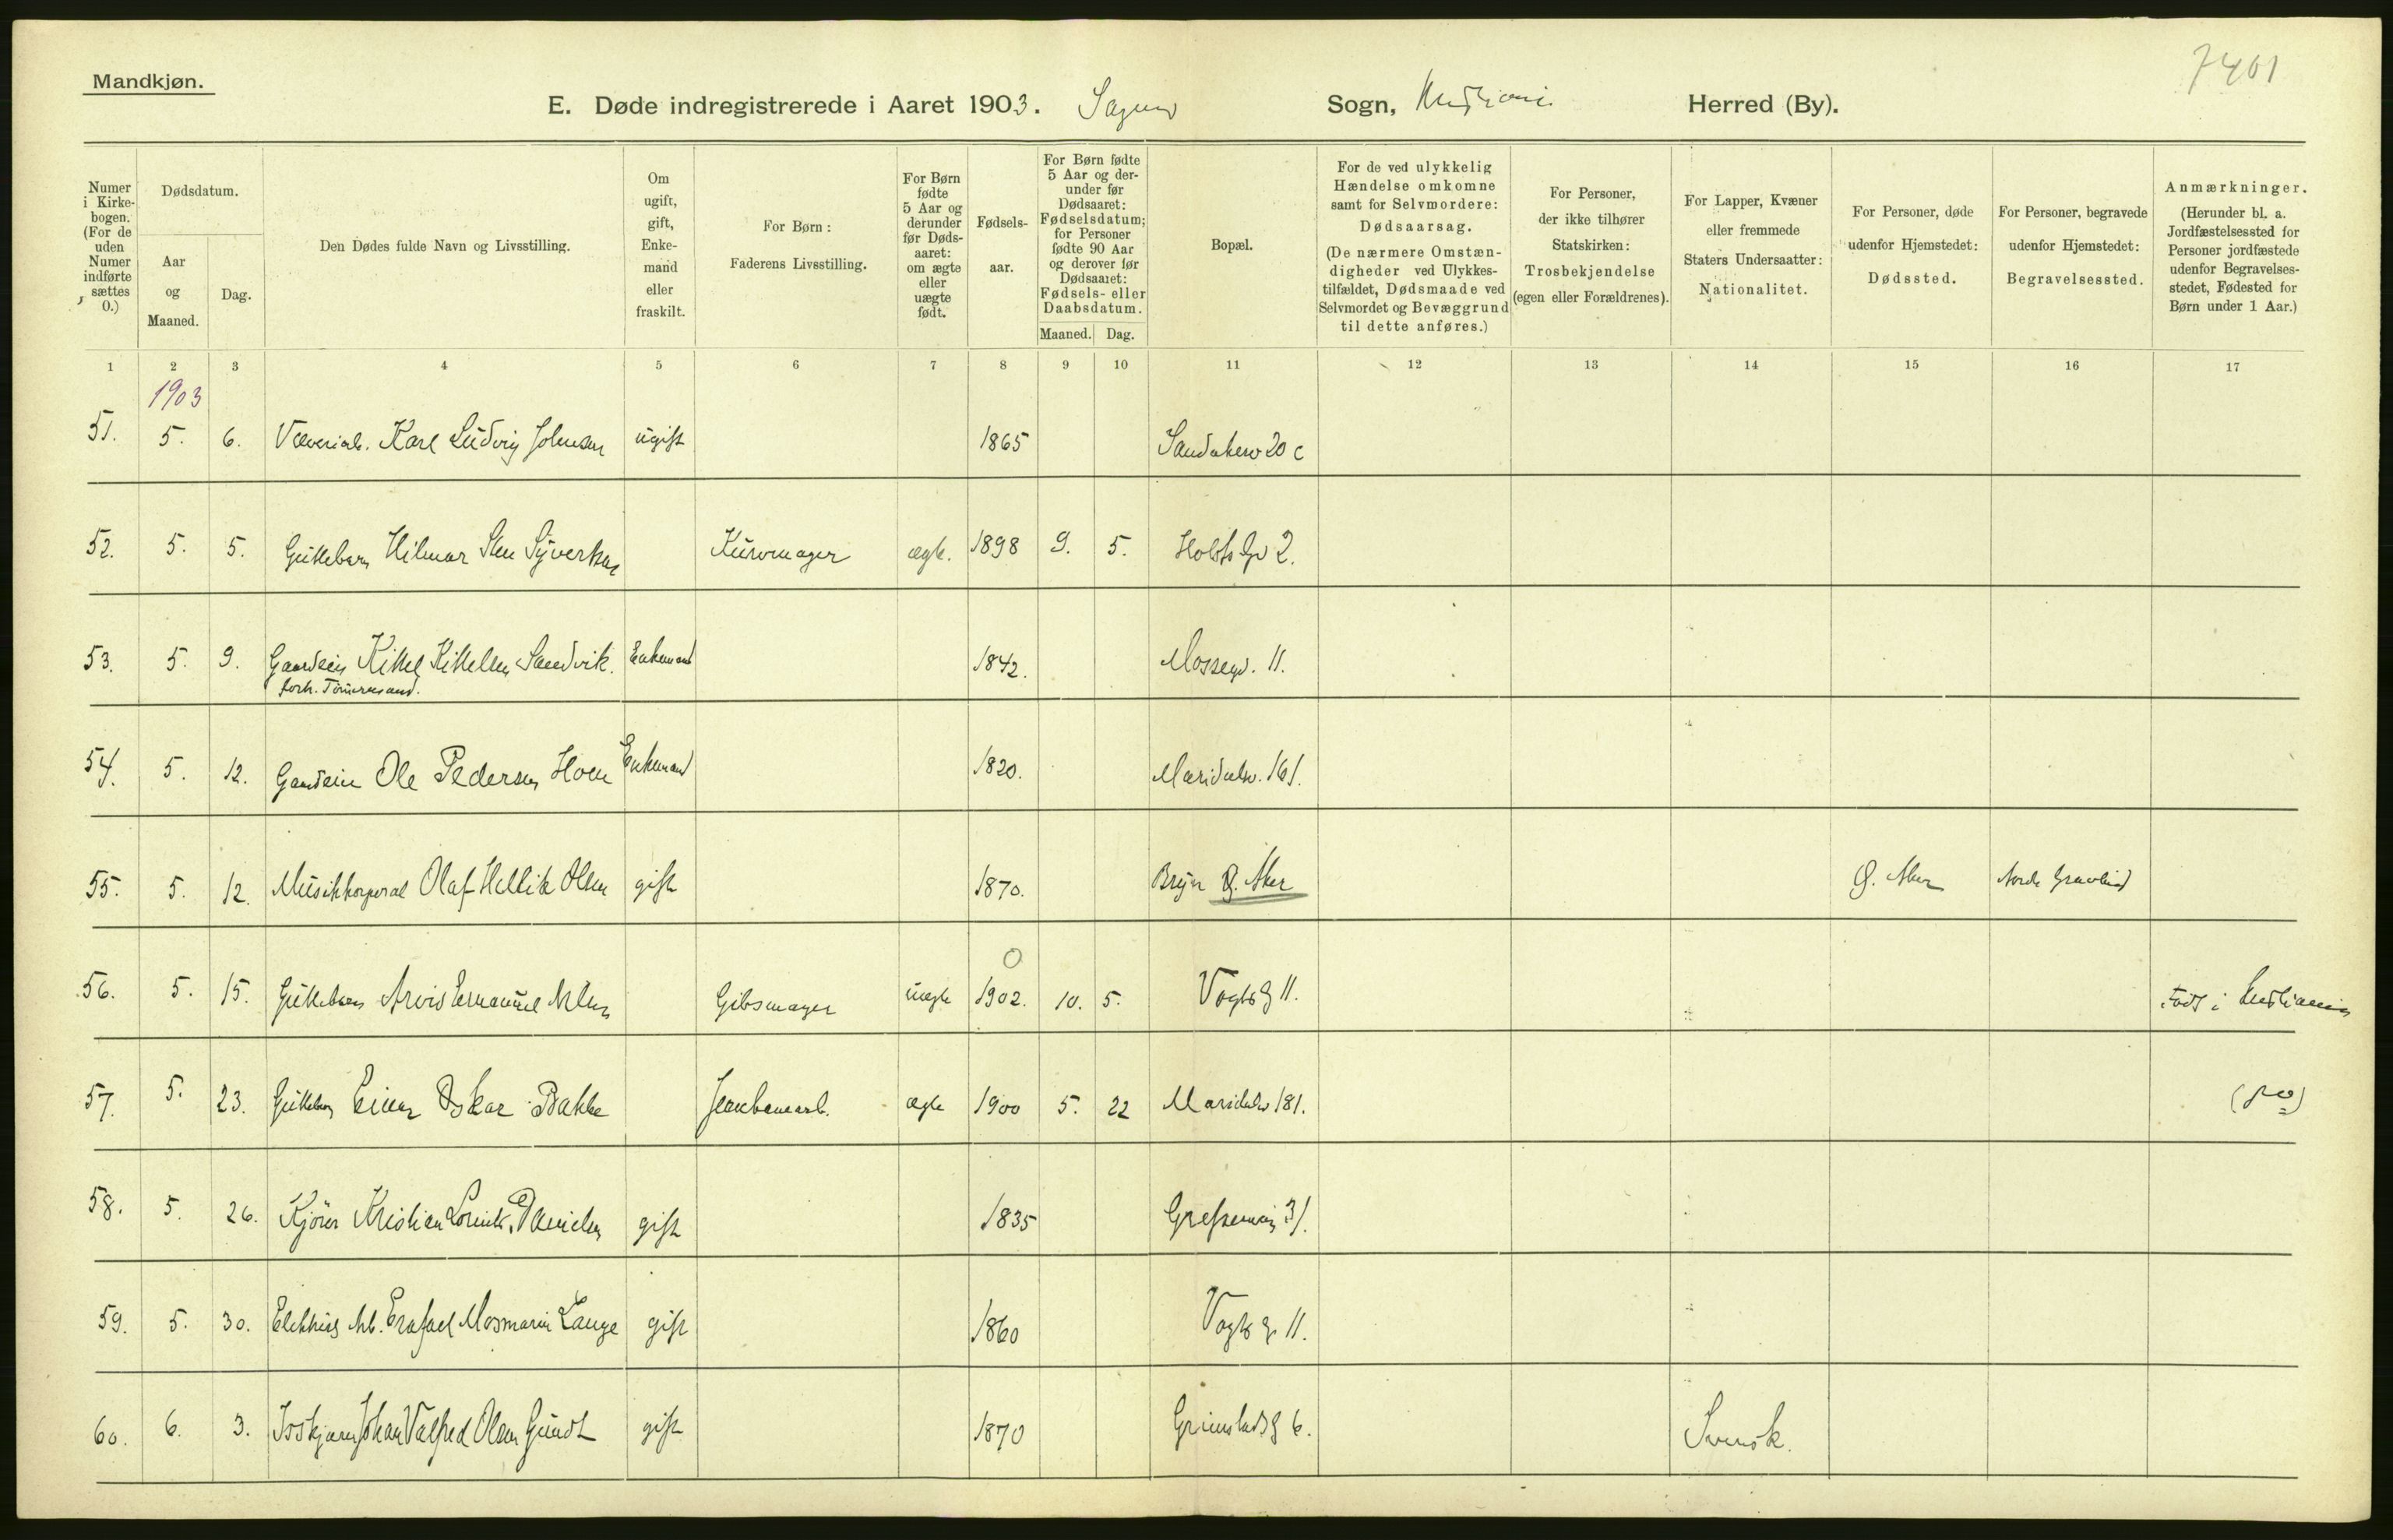 7401
Mandkjøn.
E. Døde indregistrerede i Aaret 1903. Sagene Sogn, Kristiania Herred (By).
Numer i Kirkebogen. (For de uden Numer indførte sættes 0.)
Dødsdatum.
Aar og Maaned.
Dag.
Den Dødes fulde Navn og Livsstilling.
Om ugift, gift, Enkemand eller fraskilt.
For Børn: Faderens Livsstilling.
For Børn fødte 5 Aar og derunder før Dødsaaret: om ægte eller uægte født.
Fødselsaar.
For Børn fødte 5 Aar og derunder før Dødsaaret: Fødselsdatum; for Personer fødte 90 Aar og derover før Dødsaaret: Fødsels- eller Daabsdatum.
Maaned. Dag.
Bopæl.
For de ved ulykkelig Hændelse omkomne samt for Selvmordere: Dødsaarsag. (De nærmere Omstændigheder ved Ulykkestilfældet, Dødsmaade ved Selvmordet og Bevæggrund til dette anføres.)
For Personer, der ikke tilhører Statskirken: Trosbekjendelse (egen eller Forældrenes).
For Lapper, Kvæner eller fremmede Staters Undersaatter: Nationalitet.
For Personer, døde udenfor Hjemstedet: Dødssted.
For Personer, begravede udenfor Hjemstedet: Begravelsessted.
Anmærkninger. (Herunder bl. a. Jordfæstelsessted for Personer jordfæstede udenfor Begravelsesstedet, Fødested for Børn under 1 Aar.)
1 2 3 4 5 6 7 8 9 10 11 12 13 14 15 16 17
1903
51. 5. 6. Karl Ludvig Johnsen ugift 1865 Sandakerv 20 c
52. 5. 5. Guttebarn Hilmar Sten Syvertsen Kurvmager ægte. 1898 9. 5. Holsts Gd 2.
53. 5. 9. Gaardeier Kittel Kittelsen Sandvik. Enkemand 1842. Mossegd. 11.
forh. Tømmermand.
54. 5. 12. Gaardeier Ole Pedersen Hoen Enkemand 1820. Maridalsv. 161.
55. 5. 12. Musikkorporal Olaf Hellik Olsen gift 1870. Bryn Ø. Aker Ø. Aker Nordre Gravlund
0
56. 5. 15. Guttebarn Arvid Emanuel Gibsmager uægte 1902. 10. 5. Vogtsg 11. Født i Kristiania
57. 5. 23. Guttebarn Einar Oskar Bakke Jernbanearb. ægte 1900 5. 22 Maridalsv 181. (do)
58. 5. 26. Kjører Kristian Danielsen gift 1835 Grefsenvei 31.
59. 5. 30. Lange gift 1860 Vogtsg 11.
60. 6. 3. Johan Valfred Olsen Gundt gift 1870 Grimstadsg 6. Svensk.